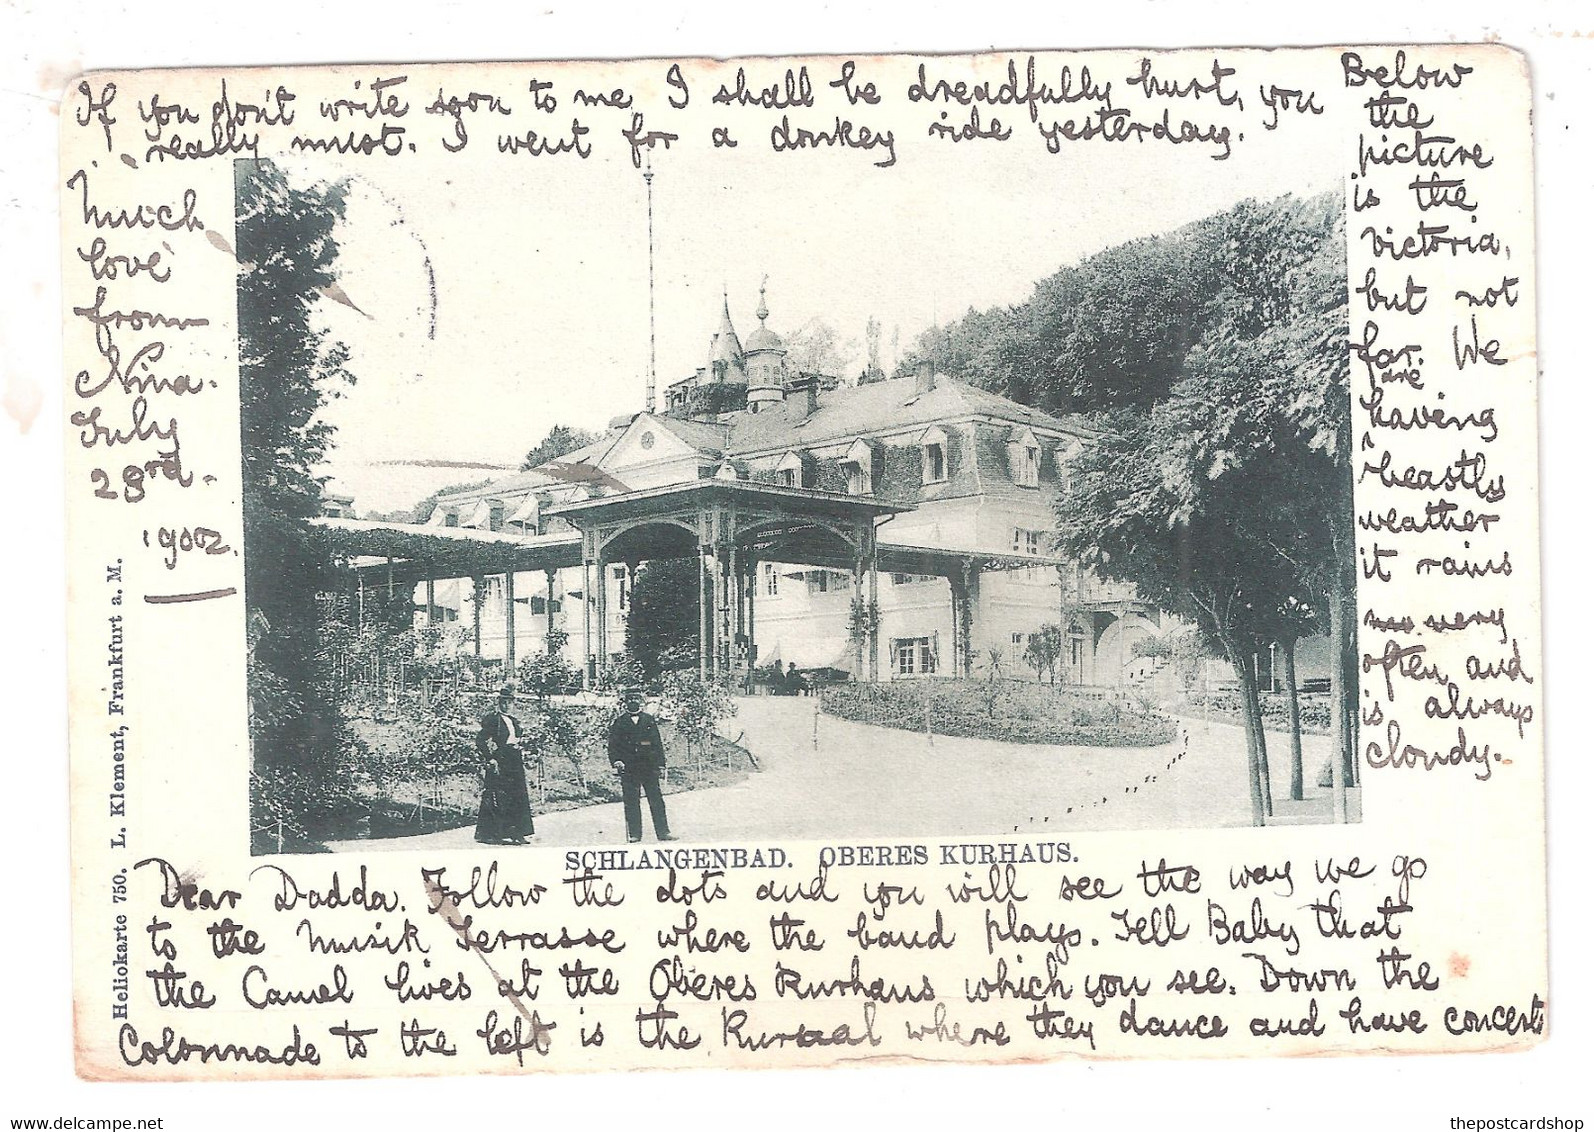 Dear Dadda. Follow the dots and you will see the way we go
to the Musik Terrasse where the band plays. Tell Baby that
the Camel lives at the Oberes Kurhaus which you see. Down the
Colonnade to the left is the Kursaal where they dance and have concerts
Below
the
picture
is the
Victoria,
but not
far. We
are
having
beastly
weather
it rains
very
often and
is always
cloudy.
If you don't write soon to me I shall be dreadfully hurt, you
really must. I went for a donkey ride yesterday.
Much
love
from
Nina.
July
23rd.
1902.
SCHLANGENBAD. OBERES KURHAUS.
Heliokarte 750. L. Klement, Frankfurt a. M.
thepostcardshop